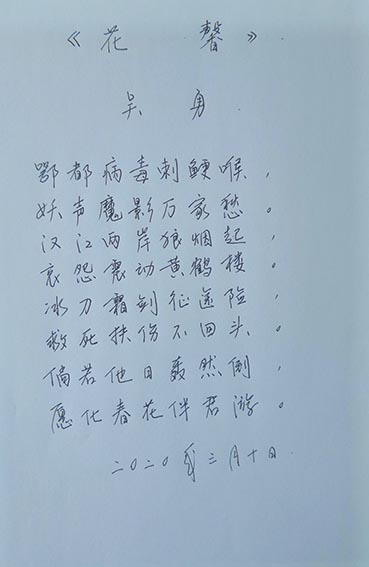 《花馨》
吴勇
鄂都病毒刺鲠喉，
妖声魔影万家愁。
汉江两岸狼烟起，
哀怨震动黄鹤楼。
冰刀霜剑征途险，
救死扶伤不回头。
倘若他日轰然倒，
愿化春花伴君游。
二〇二〇年三月十日